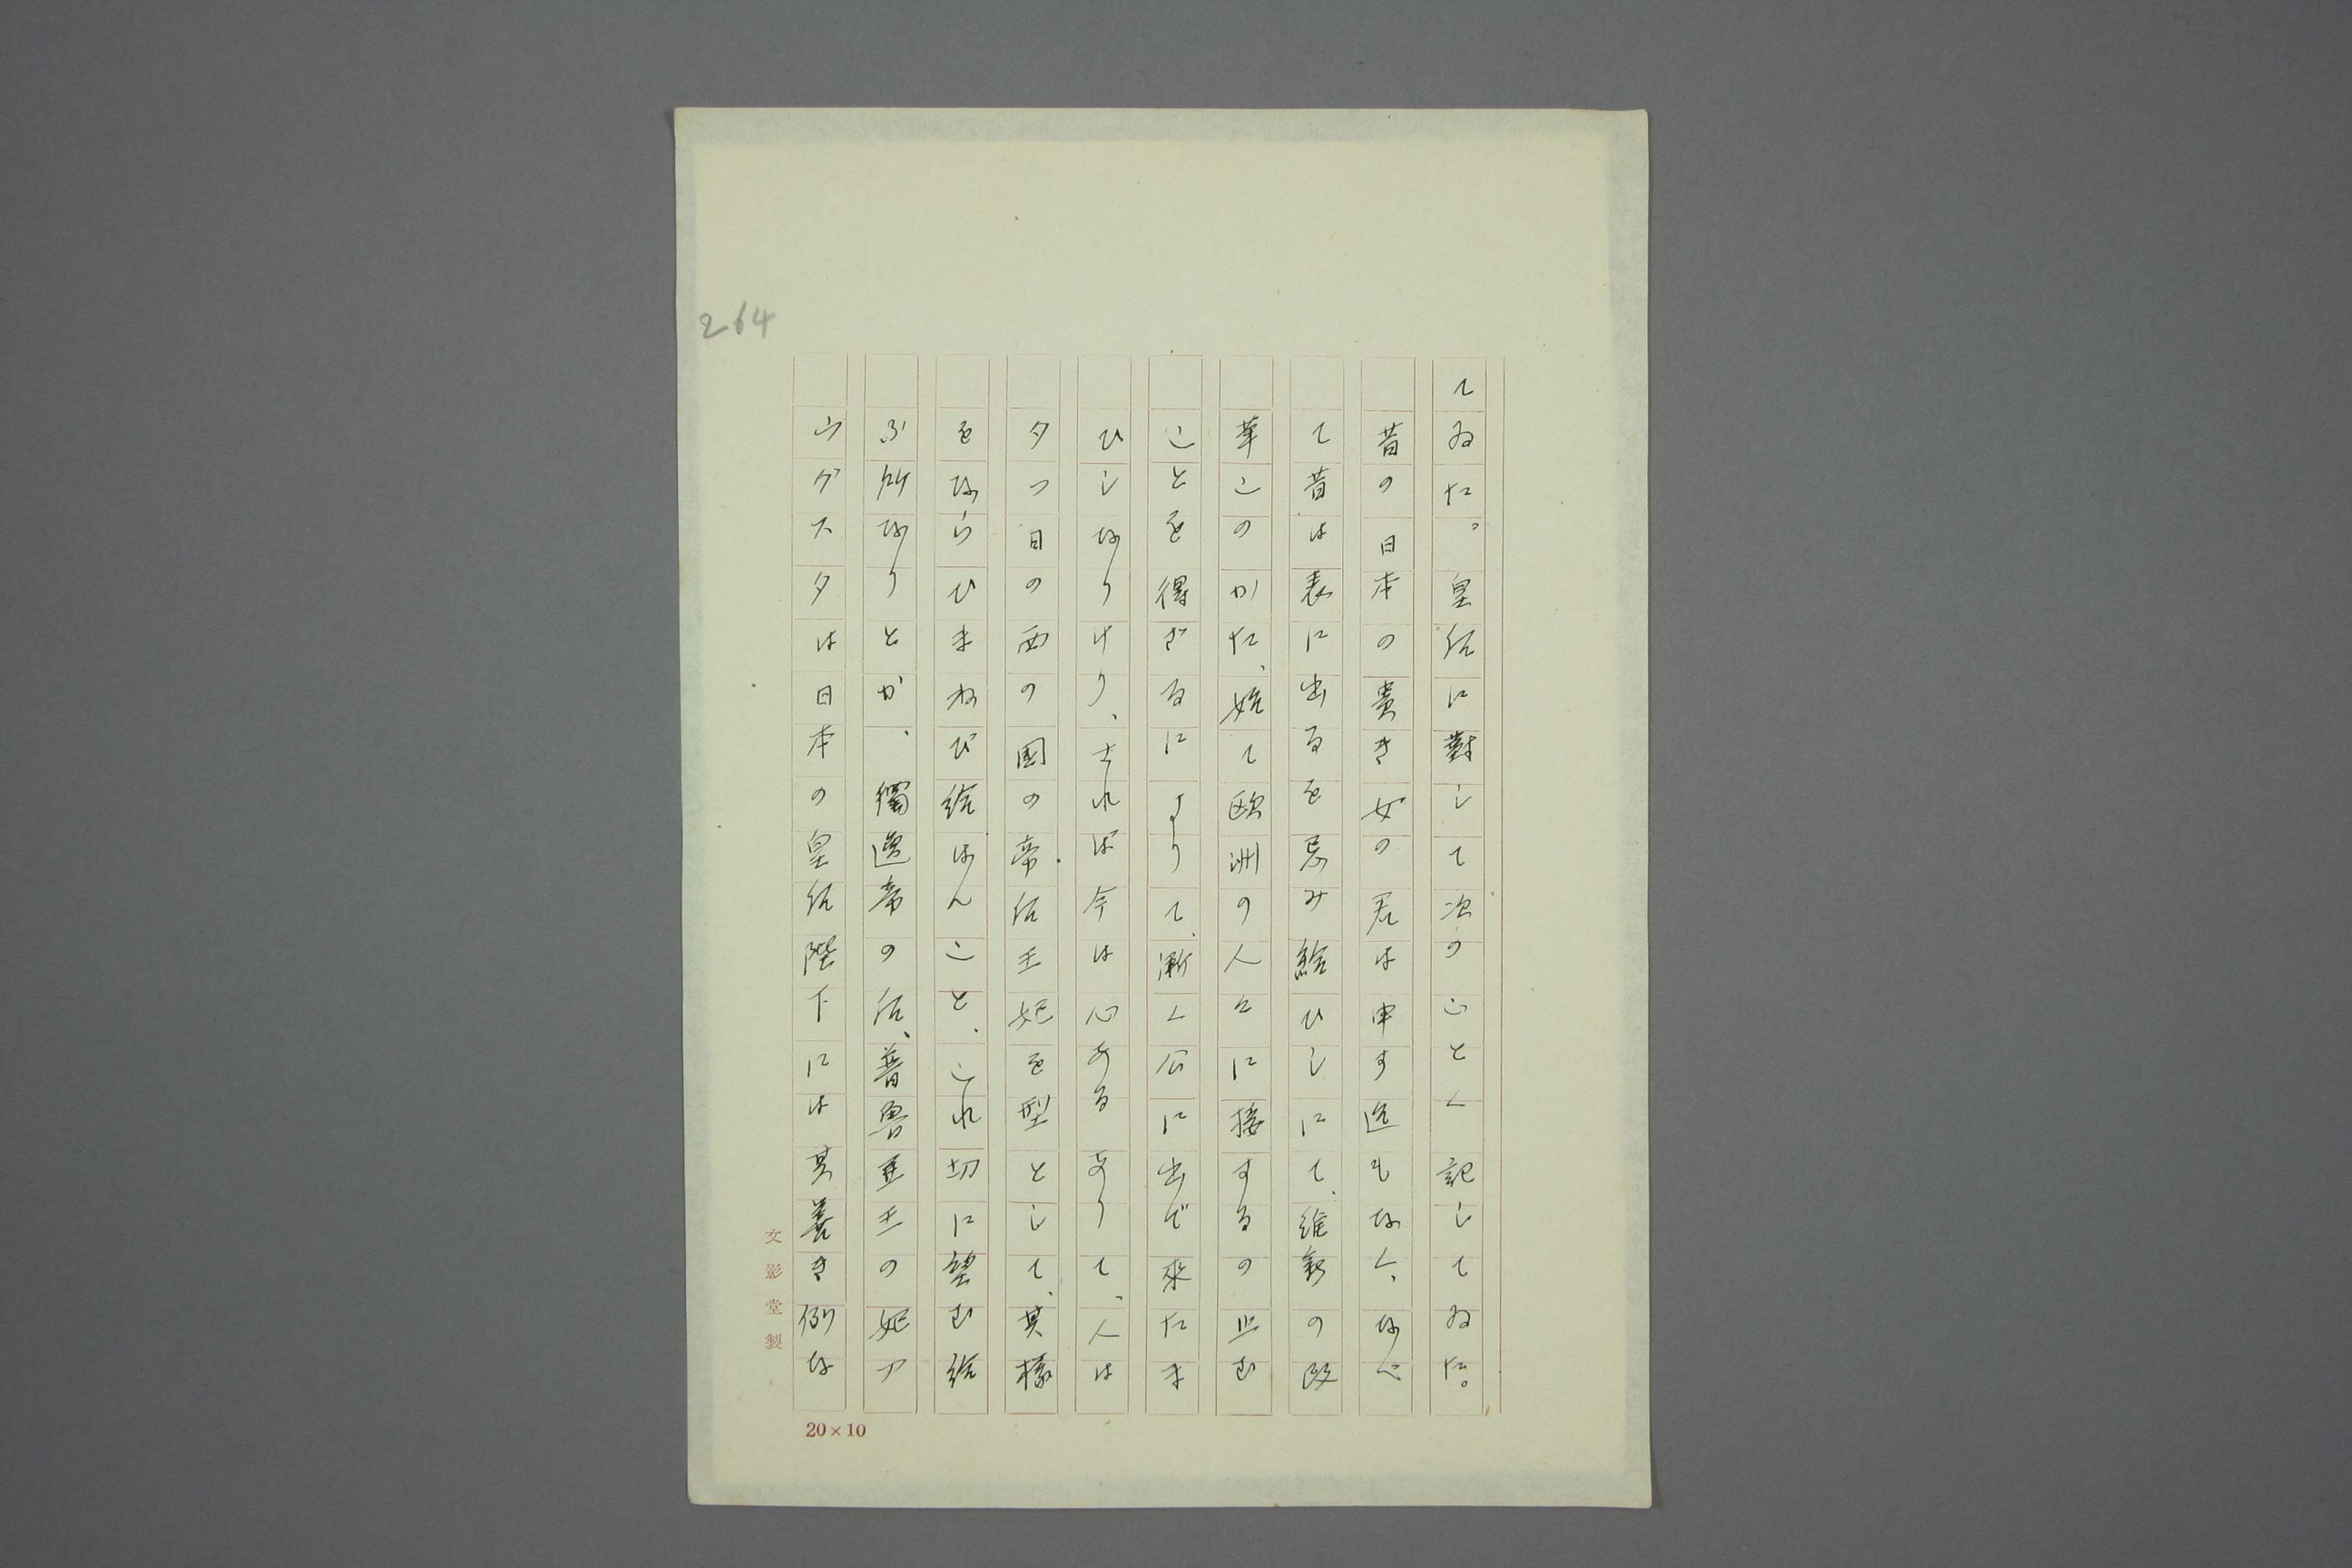 264
てゐた。皇后に對して次のごとく記してゐた。
昔の日本の貴き女の君は申す迄もなく、なべ
て昔は表に出るを忌み給ひしにて、維新の改
革このかた、始て欧洲の人々に接するの止む
ことを得ざるによりて、漸く公に出で來たま
ひしなりけり、されば今は心あるありて、人は
夕つ日の西の國の帝后王妃を型として、其樣
をならひまねび給はんこと、これ切に望む給
ふ所なりとか、獨逸帝の后、普魯亜王の妃ア
ウグスタは日本の皇后陛下には其善き例な
文影堂製
20×10